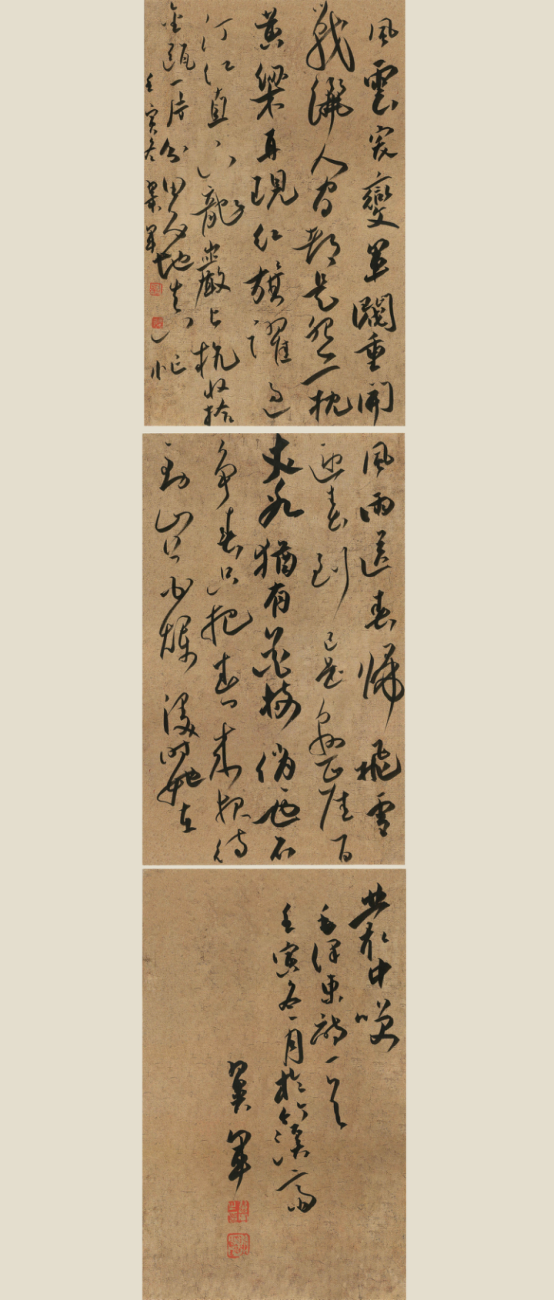 風雲突變軍閥重開
戰灑人間都是怨一枕
黄粱再現紅旗躍過
汀江直下龍巖上杭收拾
金甌一片分田分地真忙
壬寅冬翼軍
風雨送春歸飛雪
迎春到已是懸崖百
丈冰猶有花枝俏也不
争春只把春來報待
到山花爛漫時她在
叢中笑
毛澤東詞一首
壬寅冬月於
翼軍